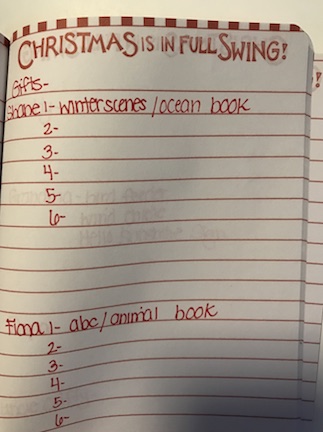 CHRISTMAS IS IN FULL SWING!
Gifts-
Shane 1- winter scenes / ocean book
2-
3-
4-
5-
6-
Fiona 1- abc / animal book
2-
3-
4-
5-
6-